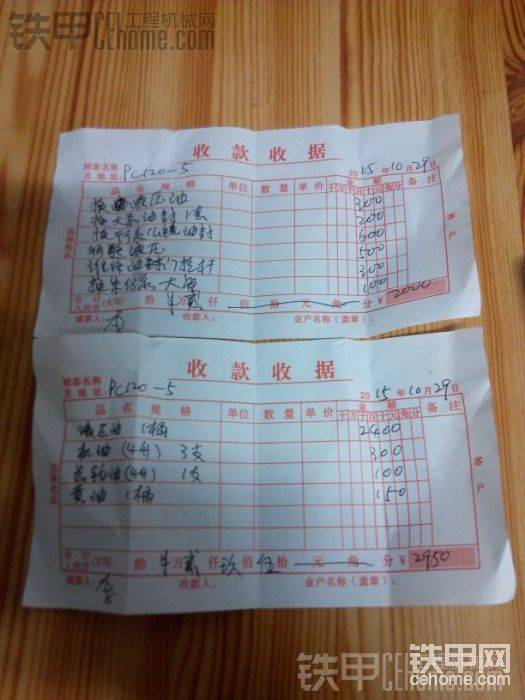 铁甲 工程机械网
Cehome.com
收款收据
顾客名称
及地址: PC120-5 2015年10月29日
品名规格 单位 数量 单价 金额 备注
十万千百十元角分
换 液压油 300
换大泵油封1套 200
换行走 油封 600
调整液压 500
维修 门拉杆 300
换 大 100
合计人民币(大写) 拾 万贰仟 佰 拾 元 角 分 ¥2000
填票人: 李 收款人: 业户名称(盖章):
客户
收款收据
顾客名称
及地址: PC120-5 2015年10月29日
品名规格 单位 数量 单价 金额 备注
十万千百十元角分
液压油 1桶 2400
机油(4升) 3支 300
齿轮油(4升) 1支 100
黄油 1桶 150
客户
合计人民币(大写) 拾 万贰仟玖佰伍拾 元 角 分 ¥2950
填票人: 李 收款人: 业户名称(盖章):
铁甲网
cehome.com